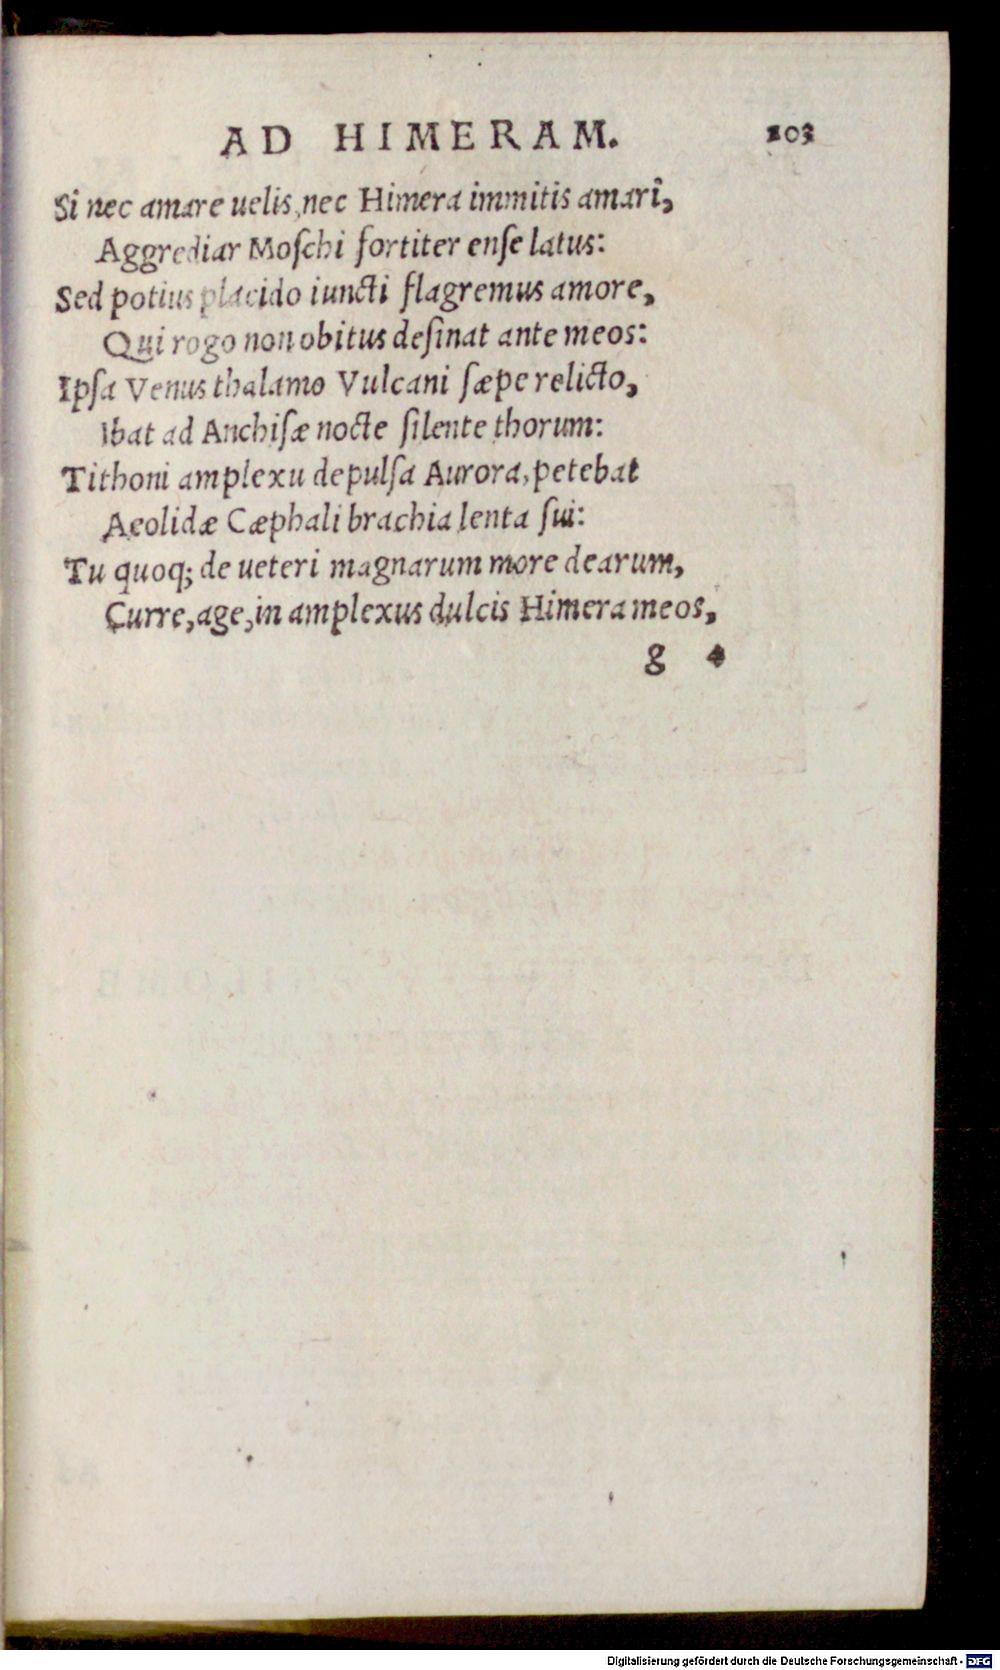 AD HIMERAM. 103
Si nec amare uelis, nec Himera immitis amari,
Aggrediar Moſchi fortiter enſe latus:
Sed potius placido iuncti flagremus amore,
Qui rogo non obitus deſinat ante meos:
Ipſa Venus thalamo Vulcani ſæpe relicto,
Ibat ad Anchiſæ nocte ſilente thorum:
Tithoni amplexu depulſa Aurora, petebat
Aeolidæ Cæphali brachia lenta ſui:
Tu quoq; de ueteri magnarum more dearum,
Curre, age, in amplexus dulcis Himera meos,
g 4
Digitalisierung gefördert durch die Deutsche Forschungsgemeinschaft - DFG